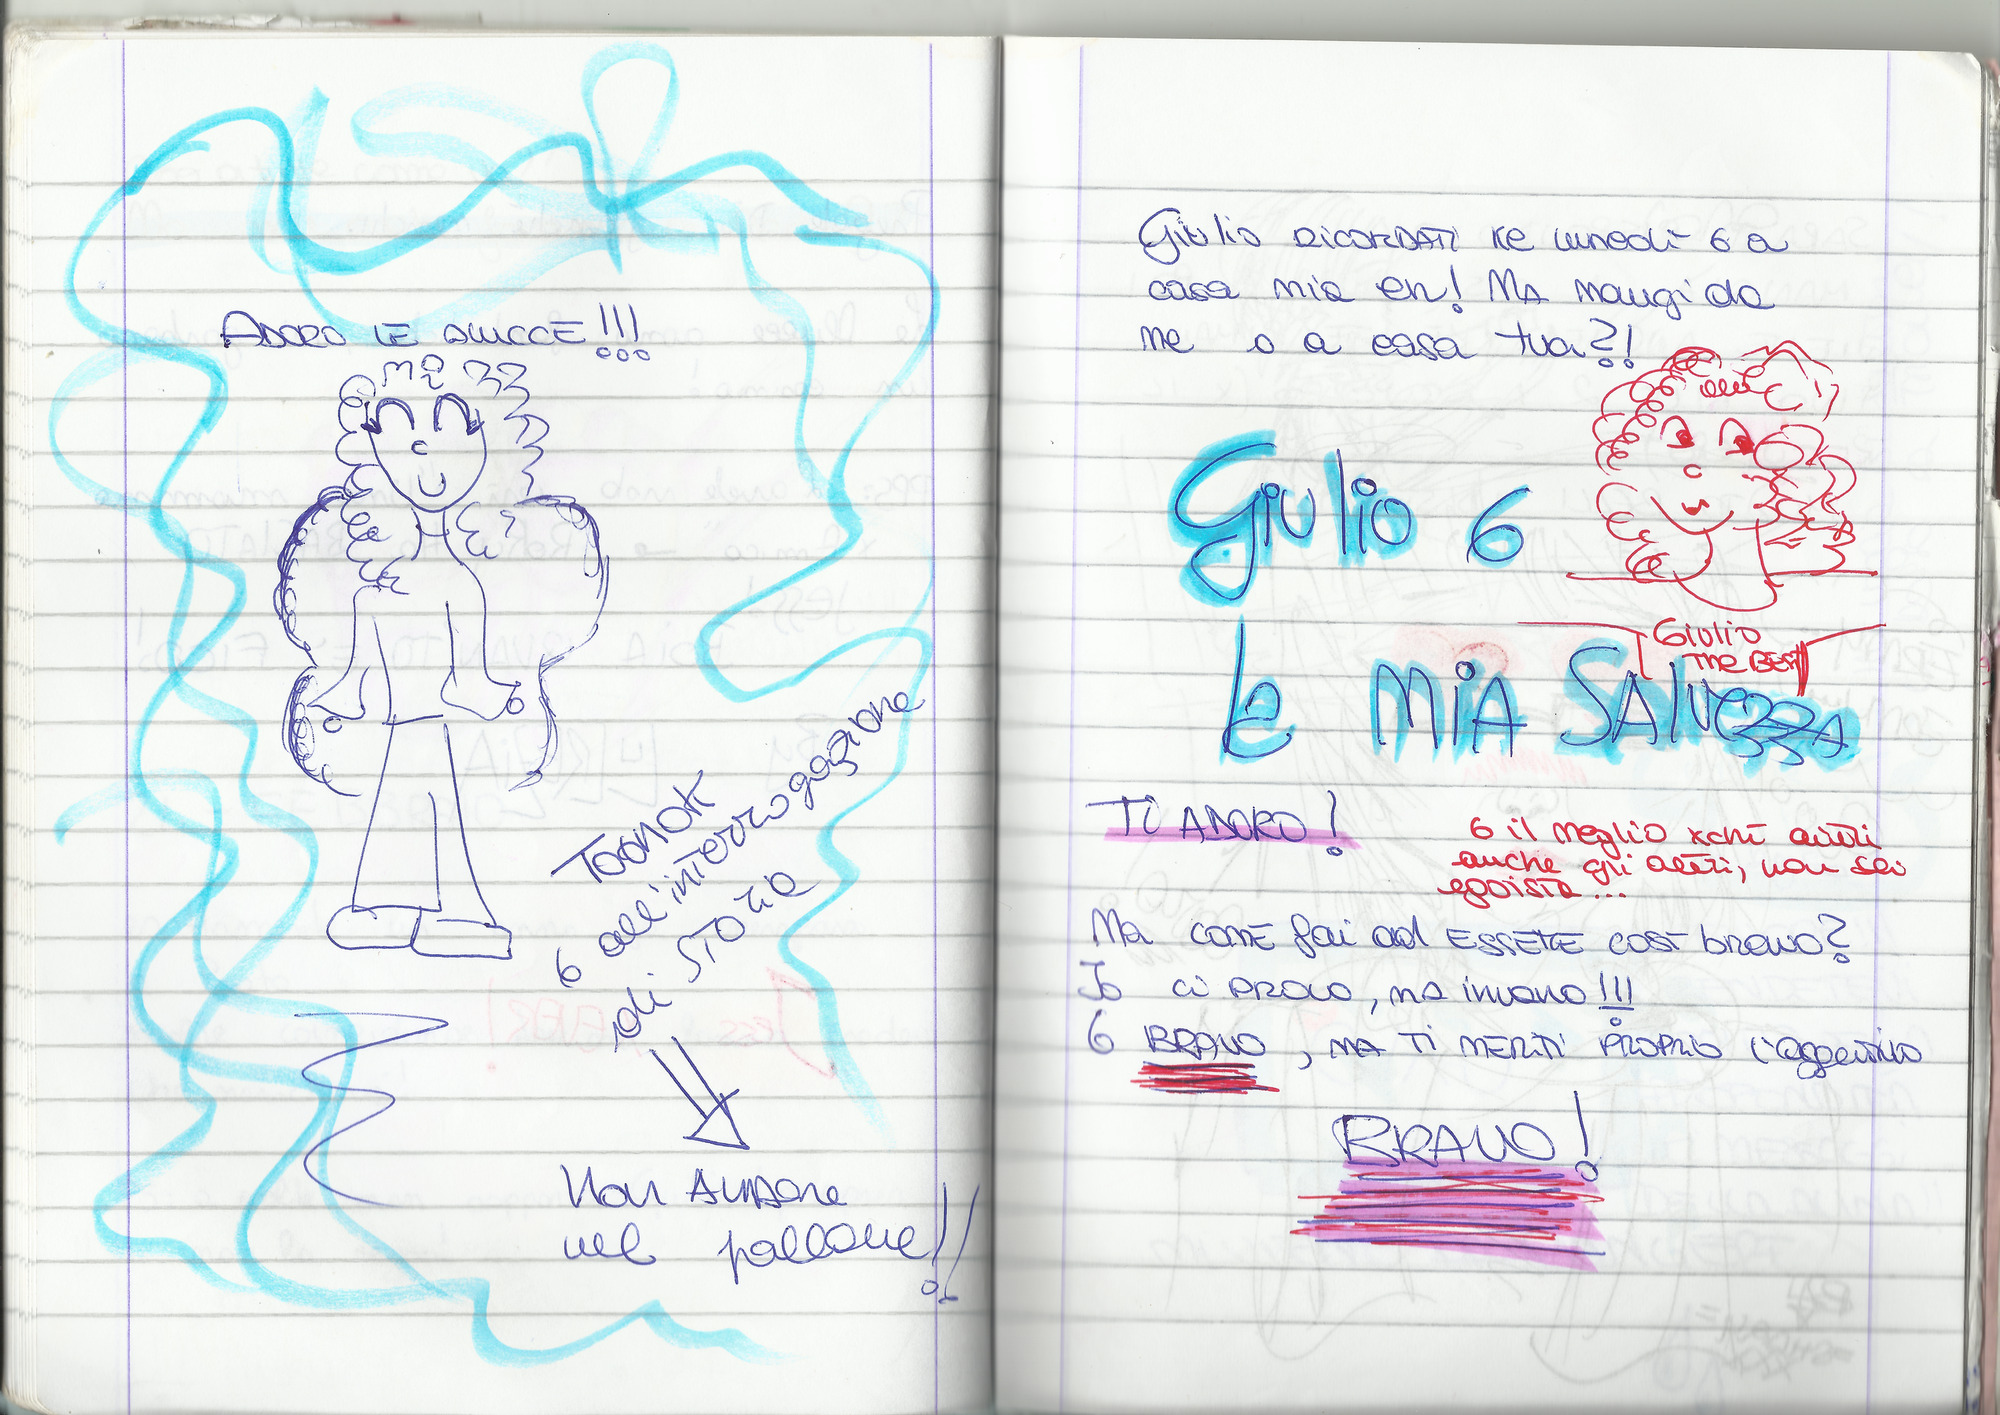 ADORO LE WINCCE!!!
TOONOK
6 all'interrogazione
di STORIA
Non ANDARE
nel pallone!!
Giulio RICORDATI KE lunedì 6 a
casa mia eh! MA mangi da
me o a casa tua?!
Giulio 6
la MIA SALVEZZA
GIULIO
THE BEST
TI ADORO!
6 il meglio xchè aiuti
anche gli altri, non sei
egoista...
Ma COME fai ad ESSERE così bravo?
Io ci PROVO, MA invano!!!
6 BRAVO, MA TI MERITI PROPRIO l'aggettivo
BRAVO!